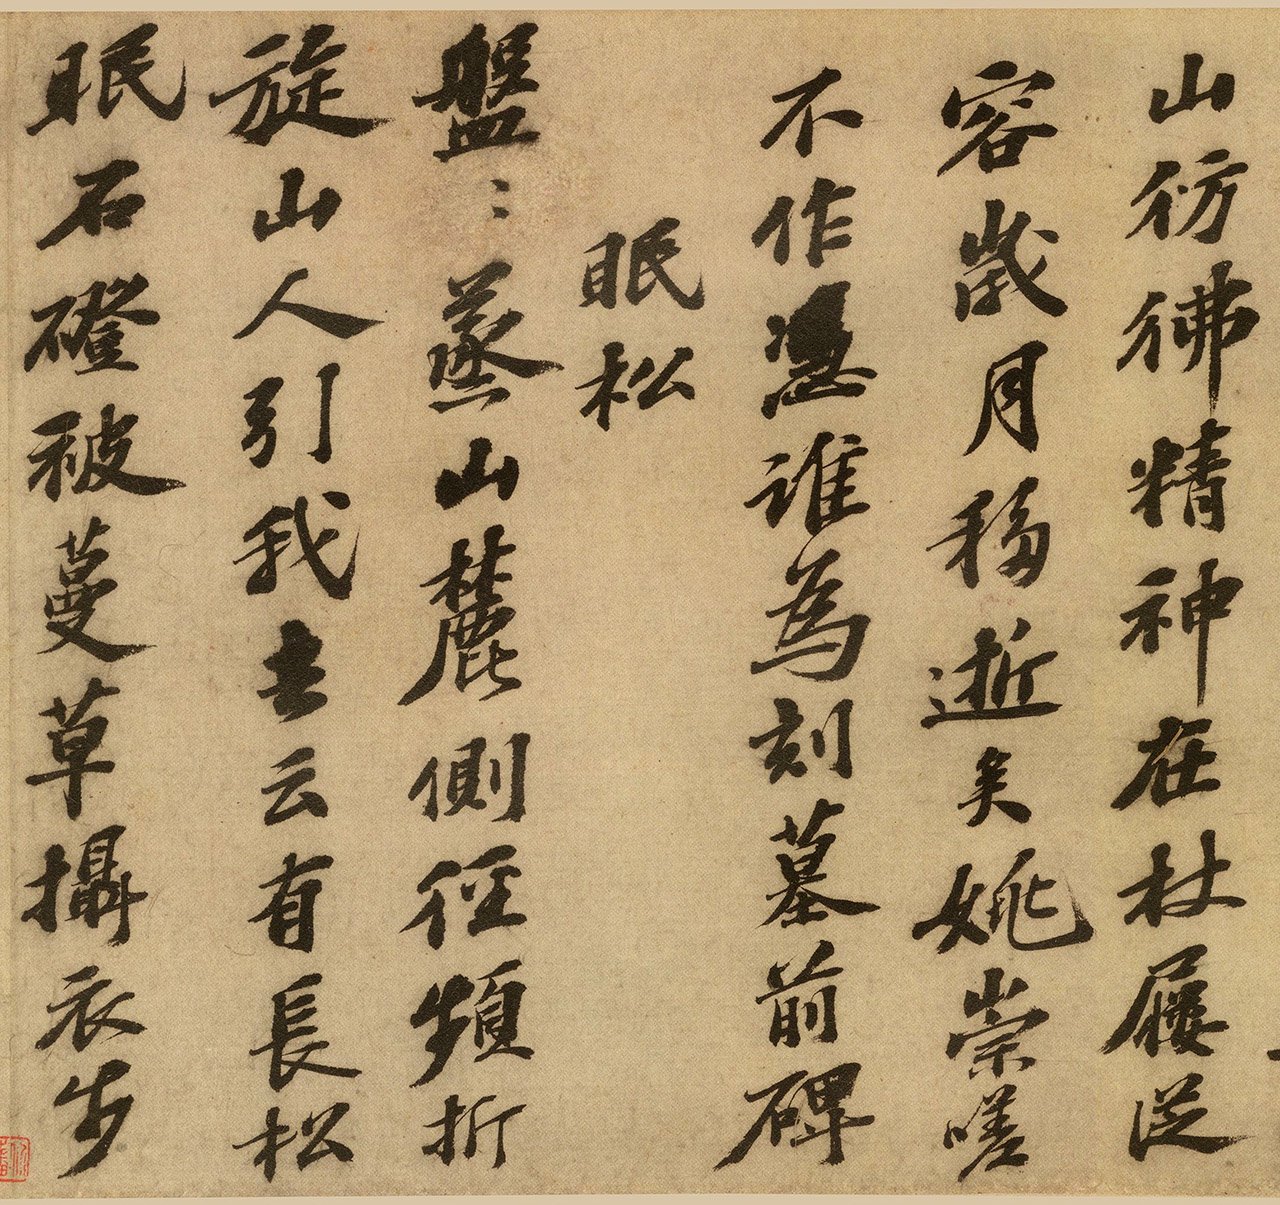 山彷彿精神在杖屨從
容歲月移逝矣姚崇嗟
不作憑誰為刻墓前碑
眠松
盤〻蒸山麓側徑頻折
旋山人引我去云有長松
眠石磴被蔓草攝衣步